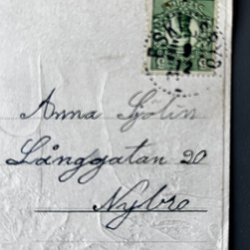 Anna Sjölin
Långgatan 20
Nybro